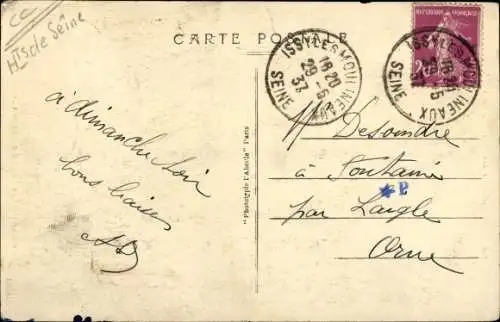 CC
Hts de Seine
CARTE POSTALE
REPUBLIQUE FRANÇAISE
ISSY LES MOULINEAUX
18 20
29-5
37
SEINE
ISSY LES MOULINEAUX
SEINE
à dimanche soir
bons baisers
"Phototypie l'Abeille" Paris
M Desoindre
à Fontaine
par Laigle
Orne